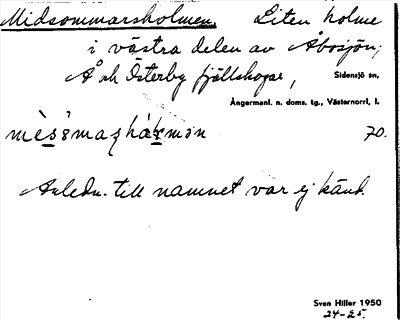 Midsommarsholmen. Liten holme
i västra delen av Åbosjön;
Å och Österby fjällskogar, Sidensjö sn,
Ångermanl. n. doms. tg., Västernorrl. l.
70.
Anledn. till namnet var ej känd.
Sven Hiller 1950
24-25.